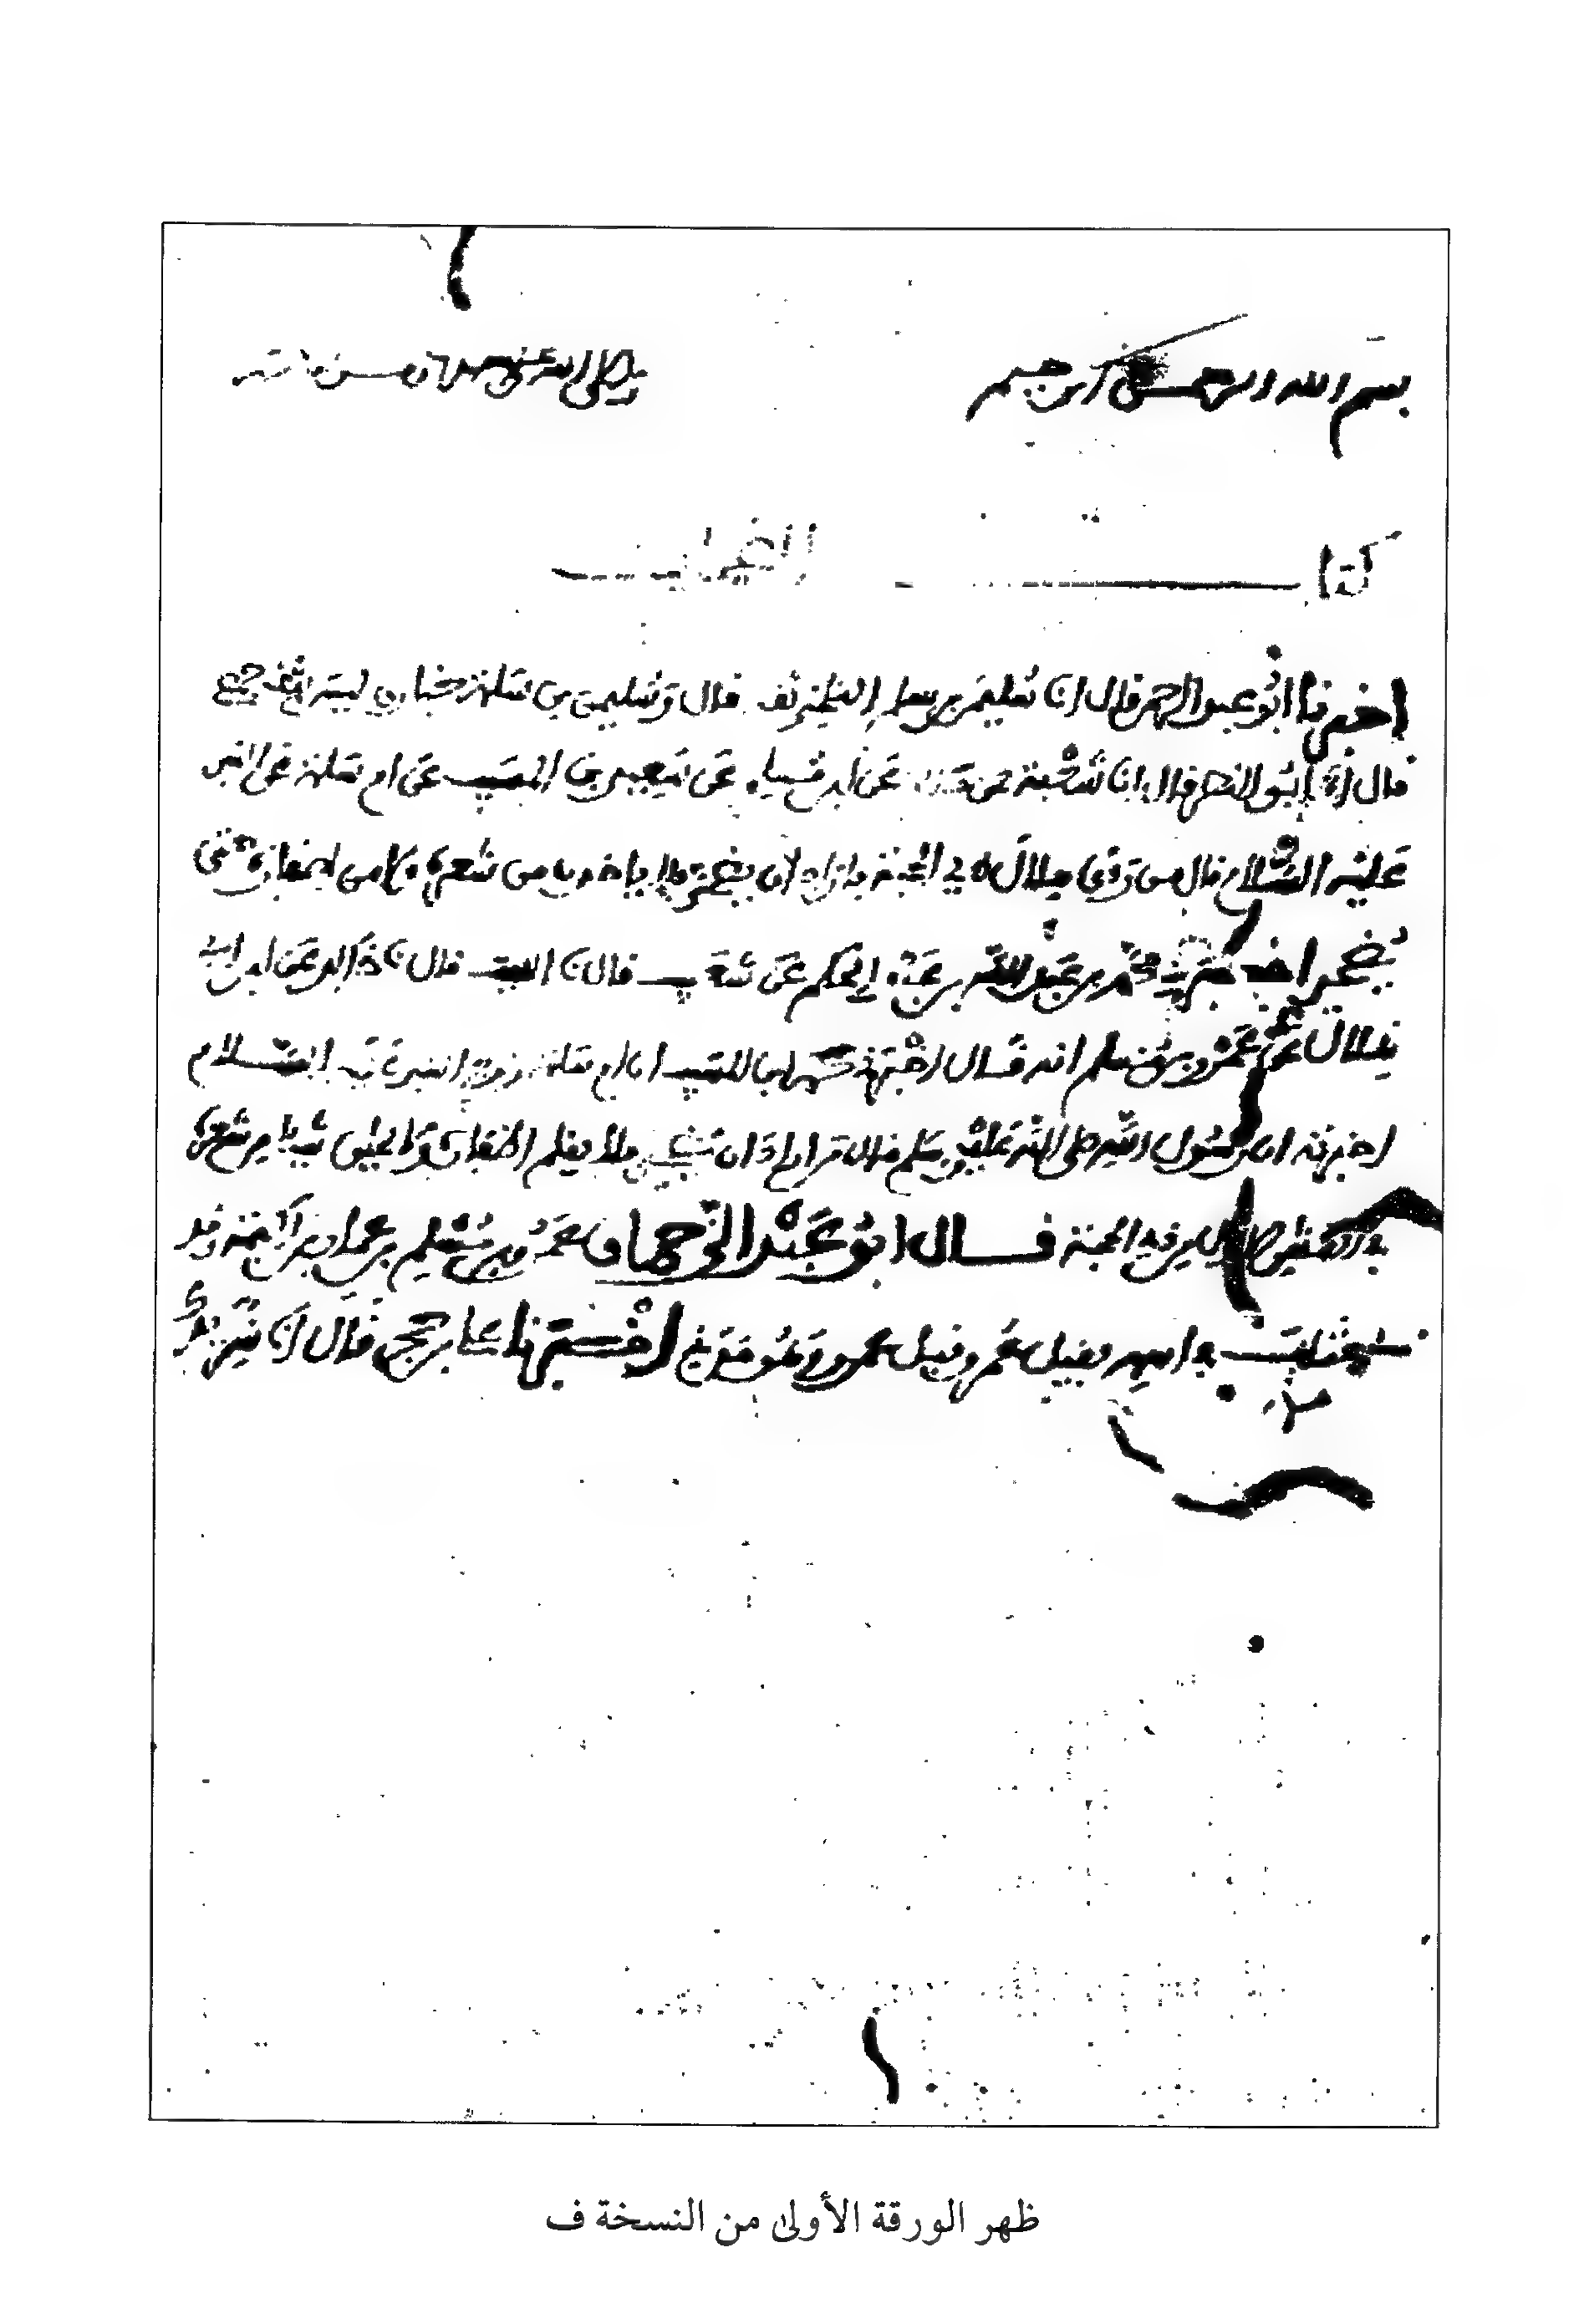 بسم الله الرحمن الرحيم صلى الله على
كتاب الضحايا
اخبرنا ابو عبد الرحمن قال انا سليمن بن سلم البلخي ثقة قال
قال انا ابو النضر قال انا شعبة عن عن ابن مسلم عن سعيد بن المسيب عن ام سلمة عن النبي
عليه السلام قال من رءى هلال ذي الحجة فاراد ان يضحي فلا ياخذ من شعره ولا من اظفاره حتى
يضحي اخبرنا محمد بن عبد الله بن عبد الحكم عن شعيب قال نا الليث قال نا خالد عن ابن ابي
هلال عن عمرو بن مسلم انه قال اخبرني ابن المسيب ان ام سلمة زوج النبي عليه السلام
اخبرته ان رسول الله صلى الله عليه وسلم قال من اراد ان يضحي فلا يقلم اظفاره ولا يحلق شيئا من شعره
في العشر الاول من ذي الحجة قال ابو عبد الرحمان عمرو بن مسلم بن عمار بن اكيمة وقد
اختلف في اسمه فقيل عمر وقيل عمرو وهو مدني اخبرنا علي بن حجر قال انا شريك
ظهر الورقة الأولى من النسخة ف